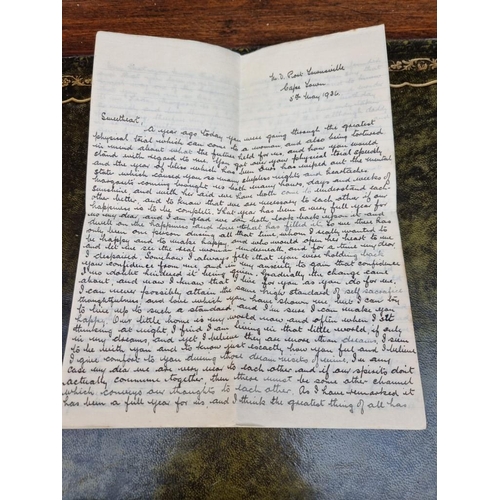 M.V. Port Townsville
Cape Town
5th May 1936
Sweetheart,
A year ago today you were going through the greatest
physical trial which can come to a woman and also being tortured
in mind about what the future held for us, and how you would
stand with regard to me. You got over your physical trial speedily
and the year of bliss which has been ours has wiped out the mental
state which caused you so many sleepless nights and heartaches.
coming brought us both many hours, days and weeks of
sunshine and with his aid we have both to understand each
other better, and to know that we are necessary to each other if our
happiness is to be complete. That year has been a very full year for
us my dear, and I am glad we can both look back upon it and
dwell on the happiness and love that has filled it. To me there has
only been one person during all that time whom I really wanted to
be happy and to make happy and who would open her heart to me
and let me see the real woman underneath, and for a time my dear
I despaired. Somehow I always felt that you were holding back
your confidence from me and in my anxiety to gain that confidence
I no doubt hindered it being given. Gradually the change came
about, and now I know that I live for you as you do for me.
I can never possibly attain the same high standard of self sacrifice
thoughtfulness and love which you have shown me but I can try
to live up to such a standard, and I'm sure I can make you
happy. Our little home is my world now and often when I sit
thinking at night I find I am living in that little world, if only
in my dreams and yet I believe they are more than dreams. I seem
to be with you and to know just exactly how you feel and I believe
I give comfort to you during those dream visits of mine. In any
case my dear we are very near to each other and if our spirits don't
actually commune together, then there must be some other channel
which conveys our thoughts to each other. As I have remarked it
has been a full year for us, and I think the greatest thing of all has